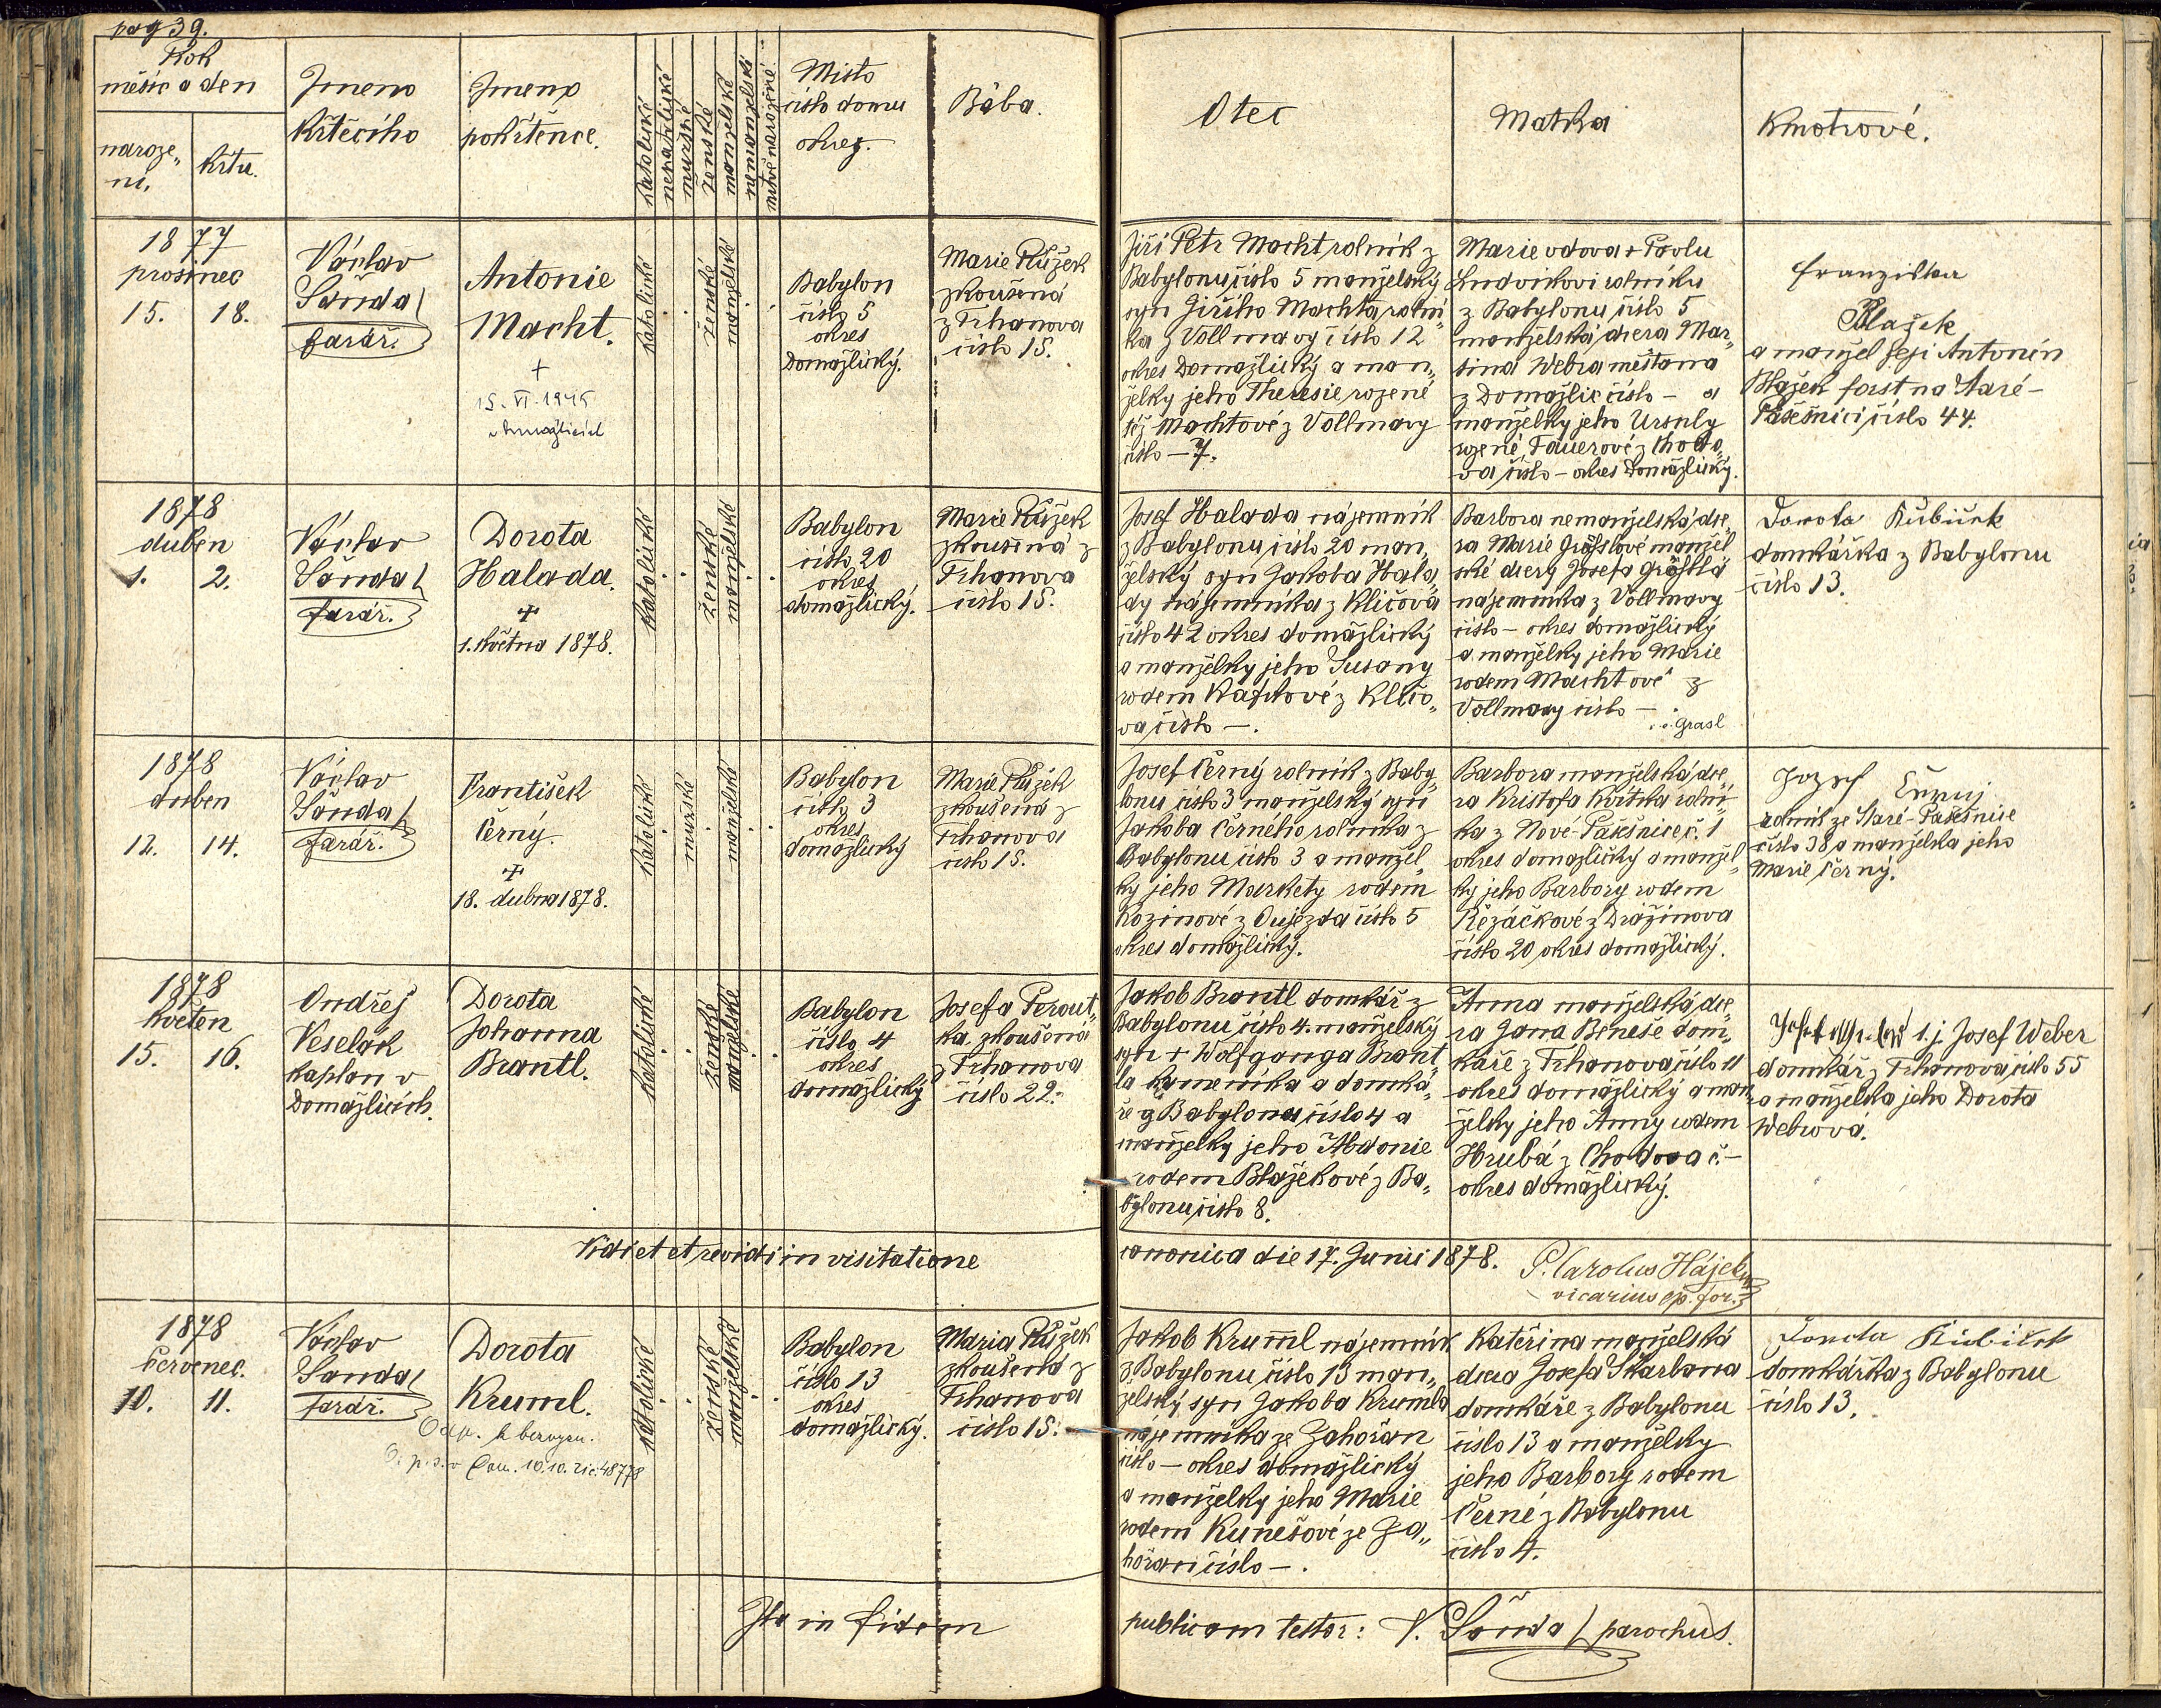 pag 39.
Rok
měsíc a den
naroze„
ní.
křtu.
Jmeno
křtícího
Jmeno
pokřtěnce.
katolické
nekatolické
mužské
ženské
manželské
nemanželské
mrtvě narozené
Místo
číslo domu
okres.
Bába.
Otec
Matka
Kmotrové.
1877
prosinec
15. 18.
Václav
Šanda
farář.
Antonie
Macht.
+
15. VI. 1945
v Domažlicích
katolické
ženské
manželské
Babylon
číslo 5
okres
Domažlický.
Marie Růžek
zkoušená
z Trhanova
číslo 15.
Jiří Petr Macht rolník z
Babylonu číslo 5 manželský
syn Jiřího Machta rolní„
ka z Vollmavy číslo 12
okres Domažlický a man„
želky jeho Theresie rozené
též Machtové z Vollmavy
číslo — 7.
Marie vdova + Pavlu
Ludvikovi rolníku
z Babylonu číslo 5
manželská dcera Mar„
tina Webra měšťana
z Domažlic číslo — a
manželky jeho Ursuly
rozené Tauerové z Chodo„
va číslo — okres Domažlický.
Franziska
Blažek
a manžel její Antonín
Blažek forst na Staré-
Pasečnici číslo 44.
1878
duben
1. 2.
Václav
Šanda
farář.
Dorota
Halada.
+
1. května 1878.
katolické
ženské
manželské
Babylon
číslo 20
okres
domažlický.
Marie Růžek
zkoušená z
Trhanova
číslo 15.
Josef Halada nájemník
z Babylonu číslo 20 man„
želský syn Jakoba Hala„
dy nájemníka z Klíčova
číslo 42 okres domažlický
a manželky jeho Susany
rodem Kafkové z Klíčo„
va číslo —.
Barbora nemanželská dce„
ra Marie Grösslové manžel
ské dcery Josefa Grössla
nájemníka z Vollmavy
číslo — okres domažlický
a manželky jeho Marie
rodem Machtové z
Vollmavy číslo —
Grasl
Dorota Kubiček
domkářka z Babylonu
číslo 13.
1878
duben
12. 14.
Václav
Šanda
farář.
František
Černý.
+
18. dubna 1878.
katolické
mužské
manželské
Babylon
číslo 3
okres
domažlický
Marie Růžek
zkoušená z
Trhanova
číslo 15.
Josef Černý rolník z Baby„
lonu číslo 3 manželský syn
Jakoba Černého rolníka z
Babylonu číslo 3 a manžel„
ky jeho Markety rodem
Kozinové z Oujezda číslo 5
okres domažlický.
Barbora manželská dce„
ra Kristofa Květka rolní-
ka z Nové-Pasečnice č. 1
okres domažlický a manžel„
ky jeho Barbory rodem
Řezáčkové z Dražinova
číslo 20 okres domažlický.
Jozef Černuj
rolník ze Staré-Pasečnice
číslo 38 a manželka jeho
Marie Černý.
1878
květen
15. 16.
Ondřej
Veselák
kaplan v
Domažlicích.
Dorota
Johanna
Brantl.
katolické
ženské
manželské
Babylon
číslo 4
okres
domažlický
Josefa Perout„
ka, zkoušená
z Trhanova
číslo 22.
Jakob Brantl domkář z
Babylonu číslo 4. manželský
syn + Wolfganga Brant„
la kameníka a domká„
ře z Babylonu číslo 4 a
manželky jeho Abdonie
rodem Blažekové z Ba„
bylonu číslo 8.
Anna manželská dce„
ra Jana Beneše dom„
káře z Trhanova číslo 11
okres domažlický a man„
želky jeho Anny rodem
Hrubá z Chodova č. —
okres domažlický.
t. j. Josef Weber
domkář z Trhanova číslo 55
a manželka jeho Dorota
Webrová.
Vidi et et revidi in visitatione canonica die 17. Junii 1878. P. Carolus Hájek
vicarius ep. for.
1878
červenec.
10. 11.
Václav
Šanda
farář.
Dorota
Kruml.
katolické
ženské
manželské
Babylon
číslo 13
okres
domažlický.
Maria Růžek
zkoušená z
Trhanova
číslo 15.
Jakob Kruml nájemník
z Babylonu číslo 13 man„
želský syn Jakoba Krumla
nájemníka ze Zahořan
číslo — okres domažlický
a manželky jeho Marie
rodem Kunešové ze Za„
hořan číslo —.
Kateřina manželská
dcera Josefa Skarbana
domkáře z Babylonu
číslo 13 a manželky
jeho Barbory rodem
Černé z Babylonu
číslo 4.
Dorota Kubiček
domkářka z Babylonu
číslo 13.
Ita in fidem publicam testor: V. Šanda parochus.